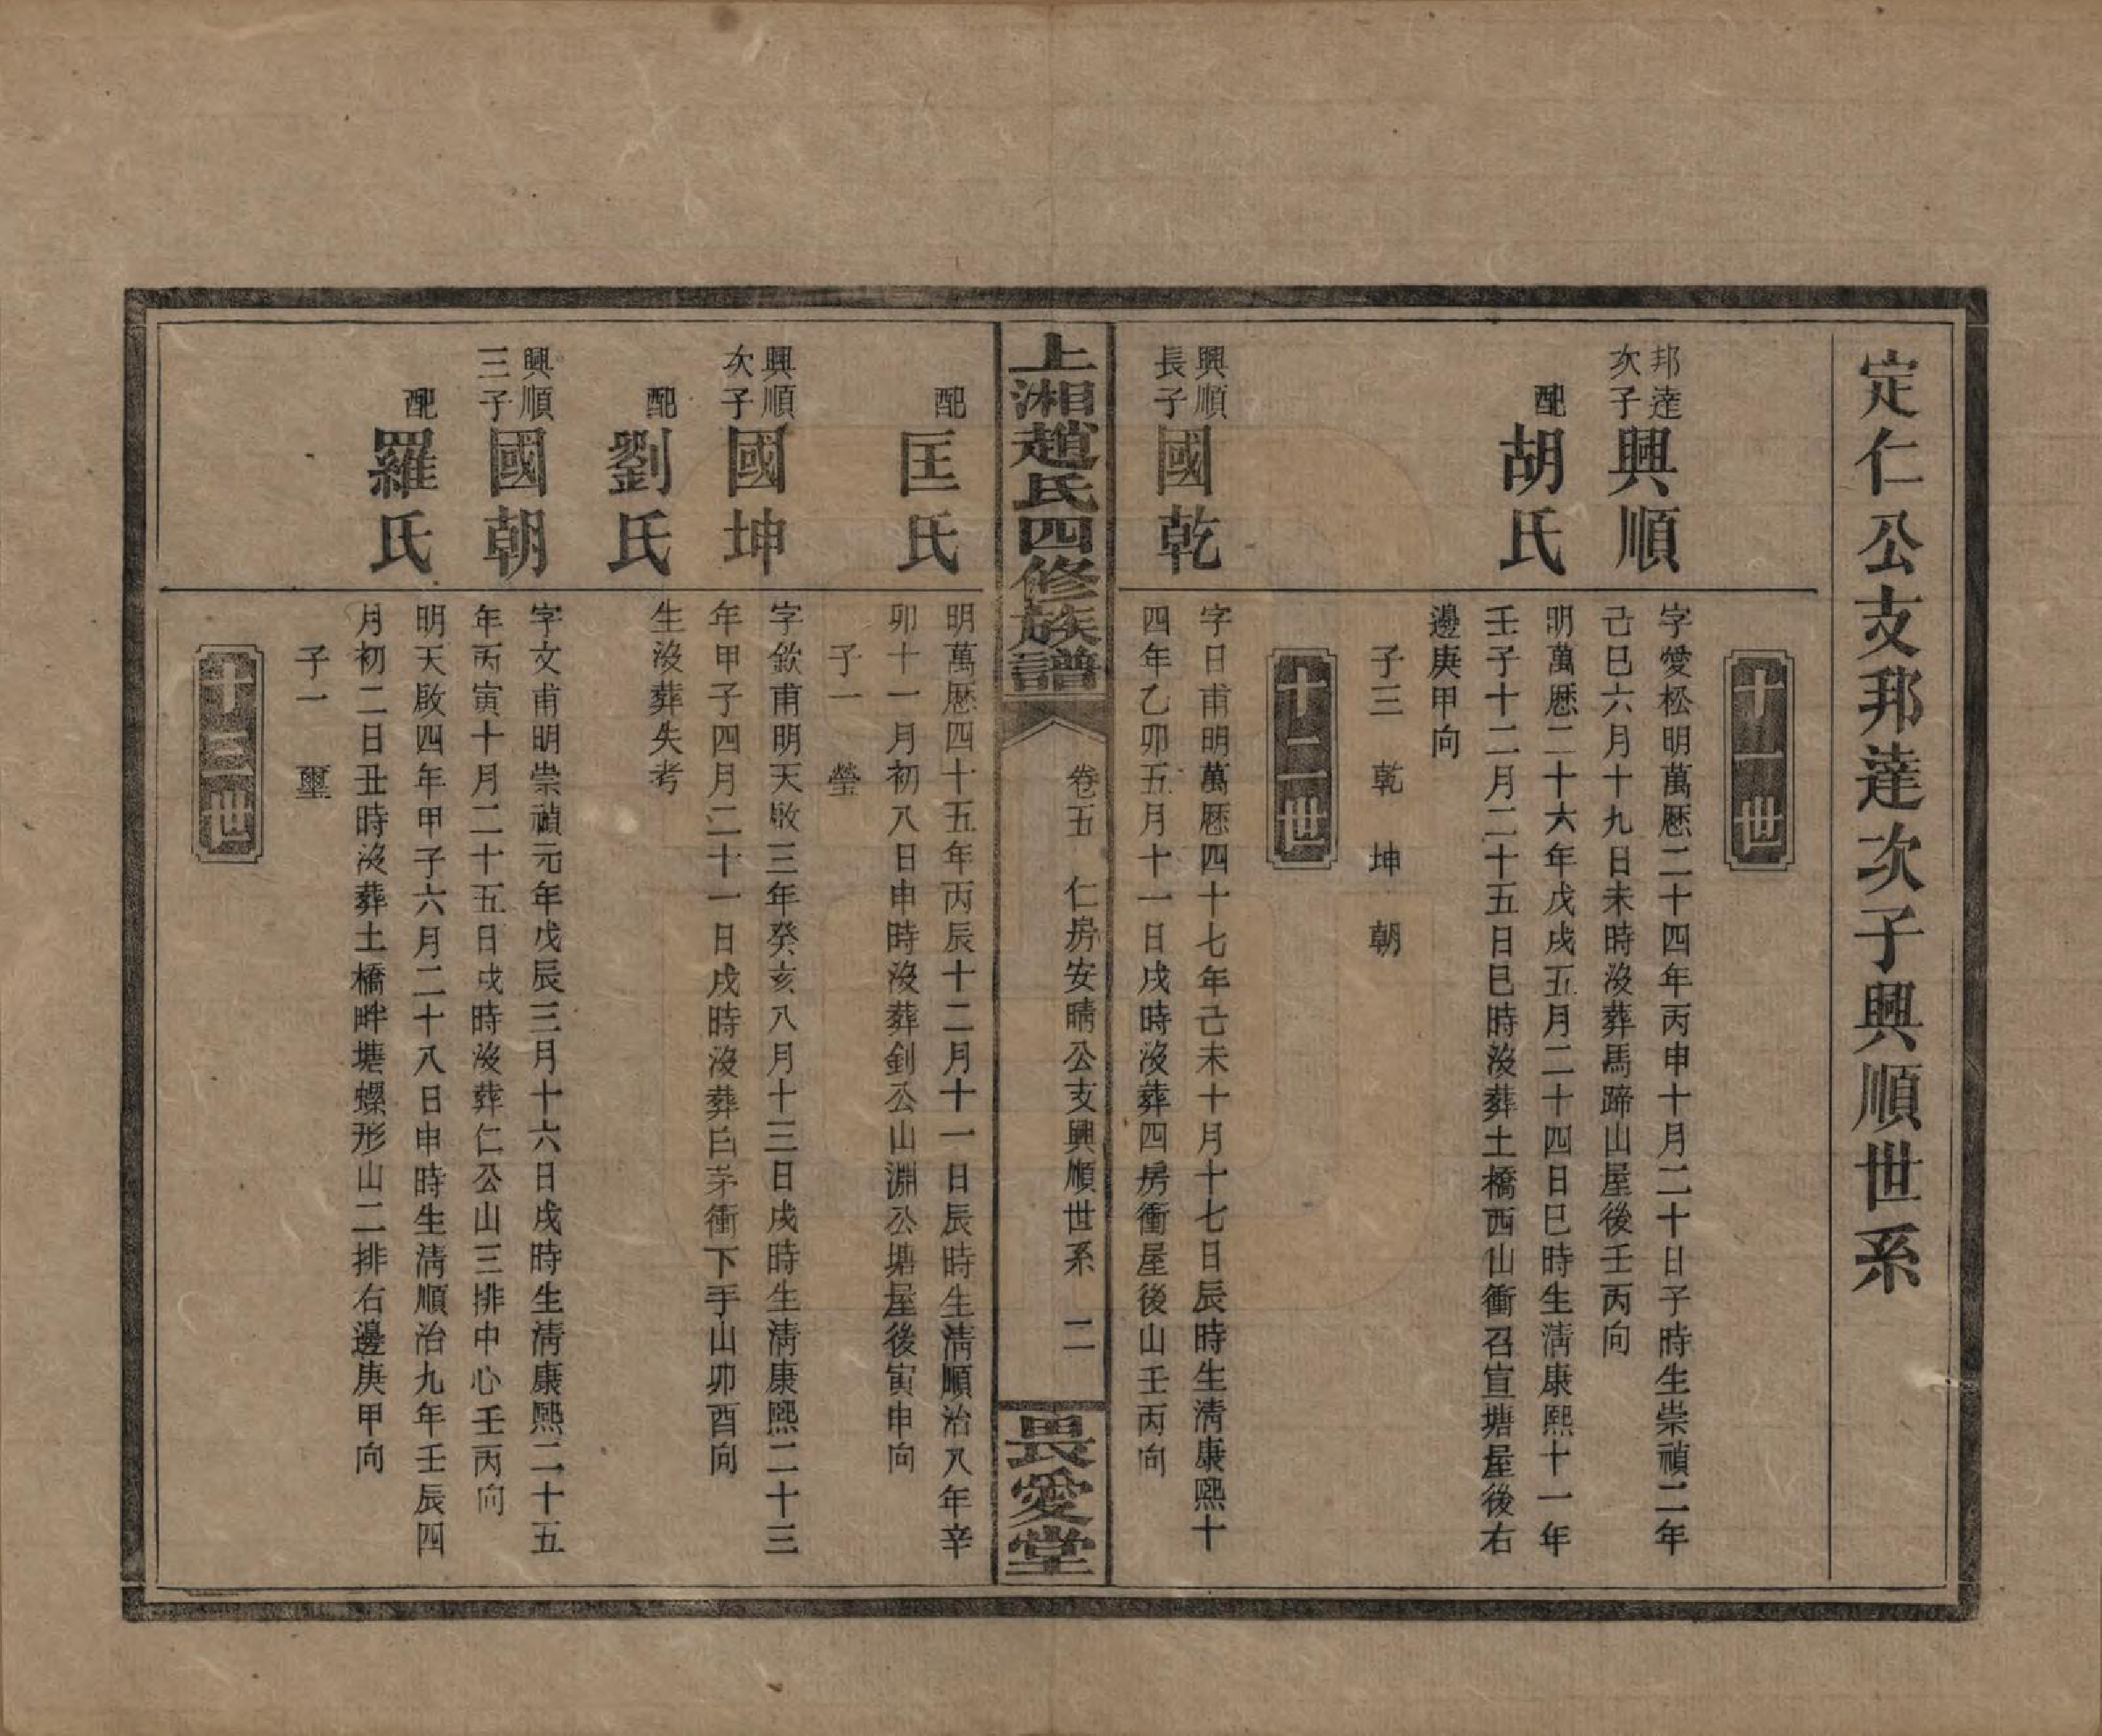 定仁公支邦達次子興順世系
十一世
邦達
次子
興順
字愛松明萬厯二十四年丙申十月二十日子時生崇禎二年
己巳六月十九日未時沒葬馬蹄山屋後壬丙向
配
胡氏
明萬厯二十六年戊戌五月二十四日巳時生淸康熙十一年
壬子十二月二十五日巳時沒葬土橋西山衝召宣塘屋後右
邊庚甲向
子三 乾 坤 朝
十二世
興順
長子
國乾
字日甫明萬厯四十七年己未十月十七日辰時生淸康熙十
四年乙卯五月十一日戌時沒葬四房衝屋後山壬丙向
上湘趙氏四修族譜
卷五 仁房安晴公支興順世系 二
畏愛堂
配
匡氏
明萬厯四十五年丙辰十二月十一日辰時生淸順治八年辛
卯十一月初八日申時沒葬釗公山淵公塘屋後寅申向
子一 瑩
興順
次子
國坤
字欽甫明天啟三年癸亥八月十三日戌時生淸康熙二十三
年甲子四月二十一日戌時沒葬白茅衝下手山卯酉向
配
劉氏
生沒葬失考
興順
三子
國朝
字文甫明崇禎元年戊辰三月十六日戌時生淸康熙二十五
年丙寅十月二十五日戌時沒葬仁公山三排中心壬丙向
配
羅氏
明天啟四年甲子六月二十八日申時生淸順治九年壬辰四
月初二日丑時沒葬土橋畔塘螺形山二排右邊庚甲向
子一 璽
十三世